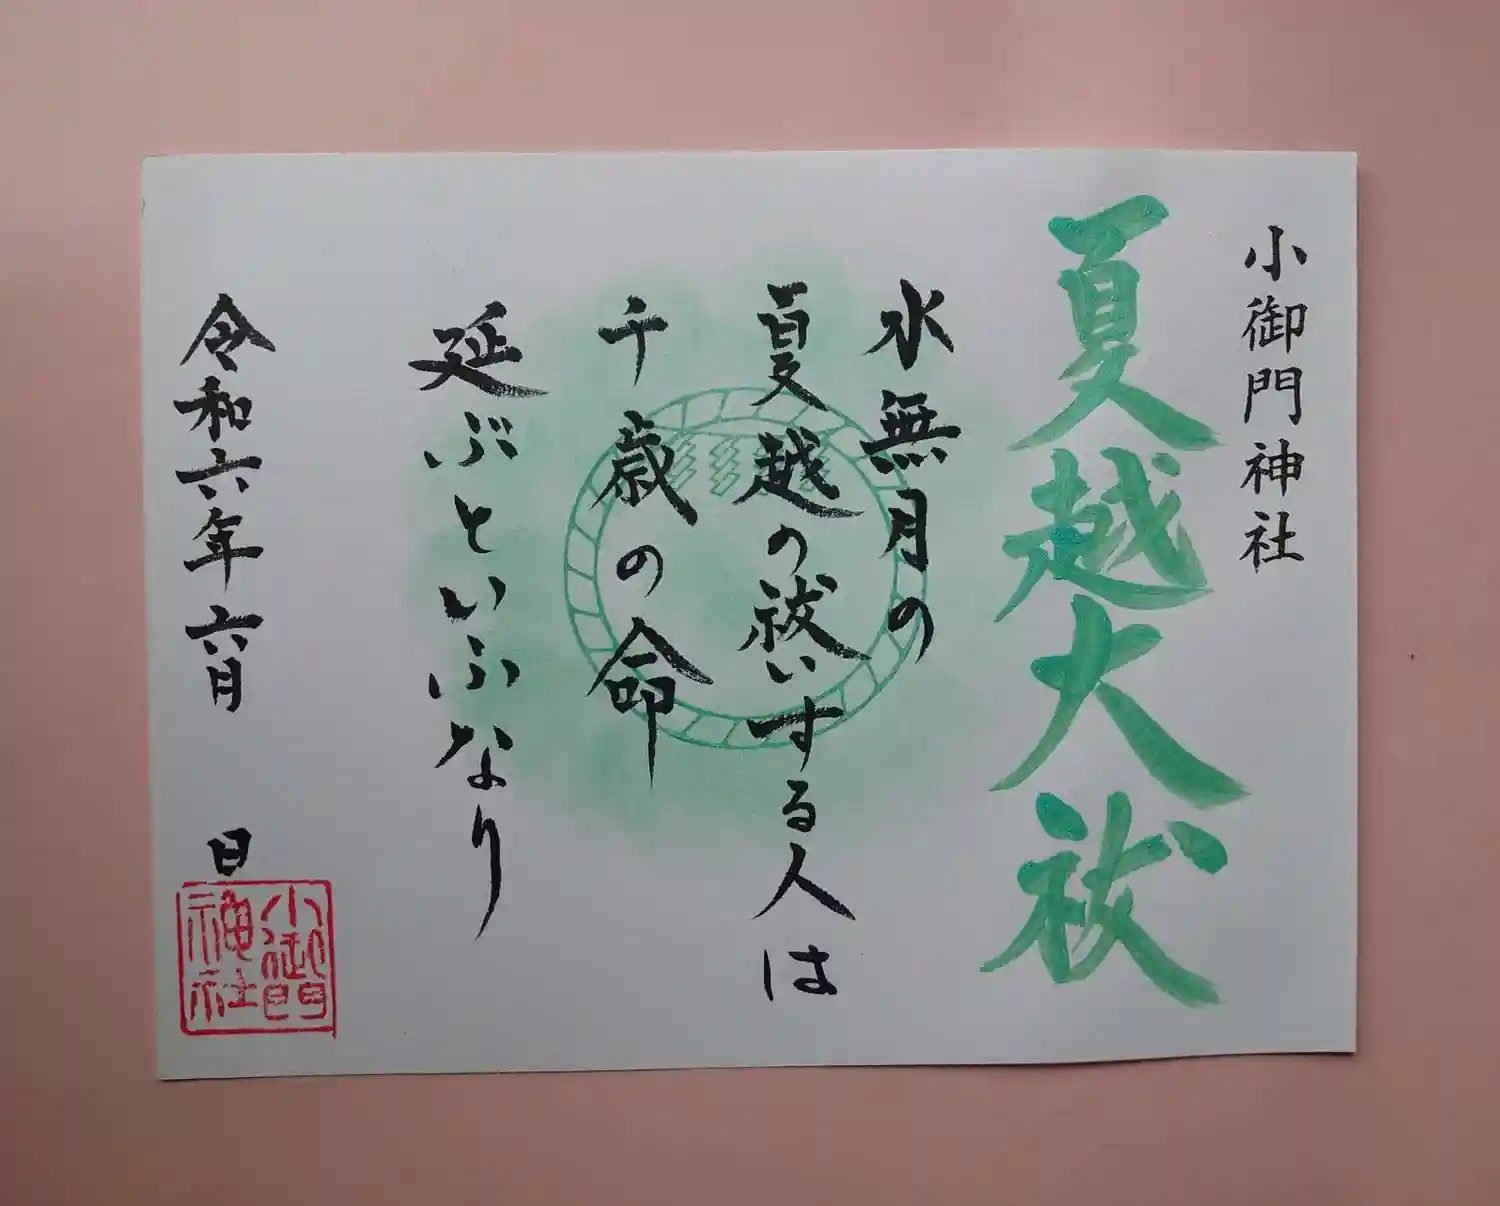 小御門神社
夏越大祓
水無月の
夏越の祓いする人は
千歳の命
延ぶといふなり
令和六年六月 日
小御門
神社